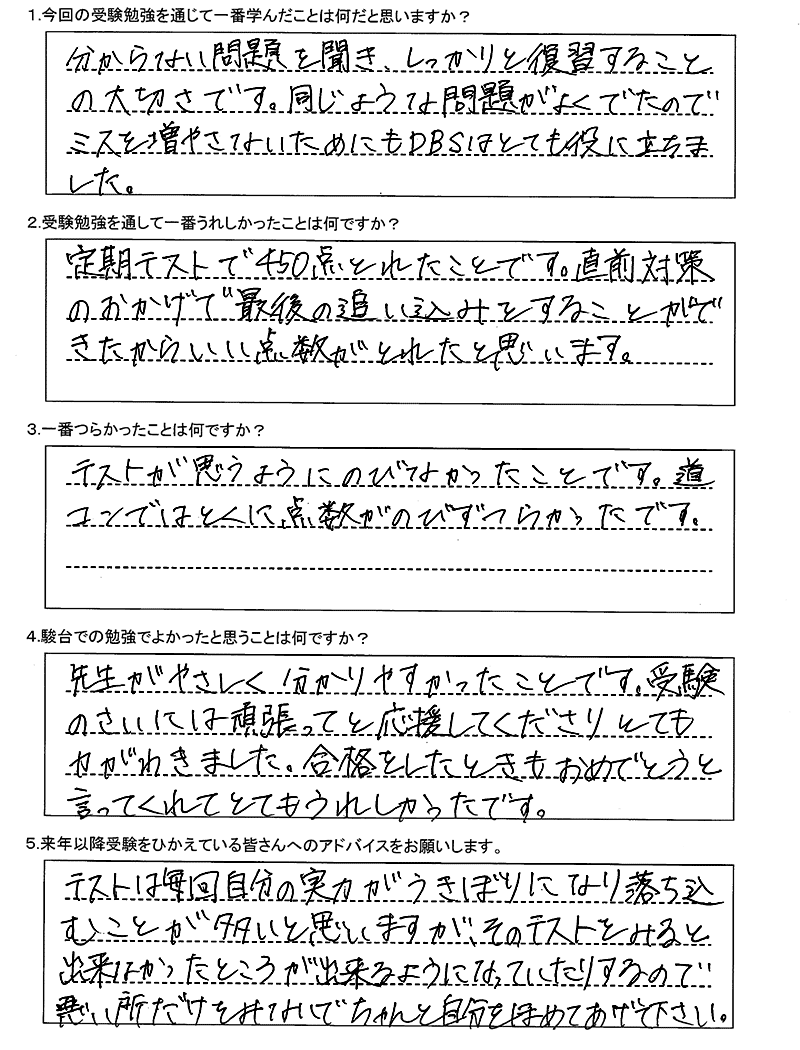 1.今回の受験勉強を通じて一番学んだことは何だと思いますか？
分からない問題を聞き、しっかりと復習すること
の大切さです。同じような問題がよくでたので
ミスを増やさないためにもDBSはとても役に立ちま
した。
2.受験勉強を通して一番うれしかったことは何ですか？
定期テストで450点とれたことです。直前対策
のおかげで最後の追い込みをすることがで
きたからいい点数がとれたと思います。
3.一番つらかったことは何ですか？
テストが思うようにのびなかったことです。道
コンではとくに点数がのびずつらかったです。
4.駿台での勉強でよかったと思うことは何ですか？
先生がやさしく分かりやすかったことです。受験
のさいには頑張ってと応援してくださりとても
力がわきました。合格をしたときもおめでとうと
言ってくれてとてもうれしかったです。
5.来年以降受験をひかえている皆さんへのアドバイスをお願いします。
テストは毎回自分の実力がうきぼりになり落ち込
むことが多いと思いますが、そのテストをみると
出来なかったところが出来るようになっていたりするので
悪い所だけをみないでちゃんと自分をほめてあげて下さい。